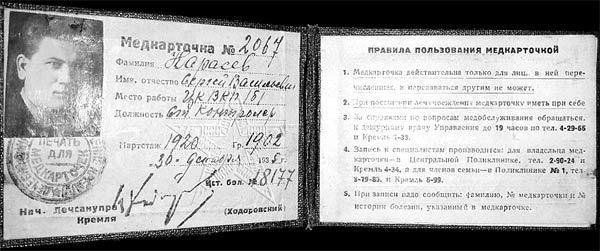 Медкарточка № 2067
Фамилия Карасев
Имя, отчество Сергей Васильевич
Место работы Цк ВКП(б)
Должность От контролер
Партстаж 1920 Гр 1902
30 декабря 1935 г.
Ист. бол. № 18177
Нач. Лечсанупра
Кремля
(Ходоровский)
ПЕЧАТЬ
ДЛЯ
МЕДКАРТОЧЕК
ПРАВИЛА ПОЛЬЗОВАНИЯ МЕДКАРТОЧКОЙ
1. Медкарточка действительна только для лиц, в ней перечисленных, и передаваться другим не может.
2. При посещении лечучреждения медкарточку иметь при себе
3. За справками по вопросам медобслуживания обращаться к дежурному врачу Управления до 19 часов по тел. 4-29-66 и Кремль
4. Запись к специалистам производится: для владельца медкарточки—в Центральной Поликлинике, тел. 2-90-24 и Кремль 4-34, а для членов семьи—в Поликлинике № 1, тел. 8-79-85 и Кремль 6-99.
5. При записи надо сообщить: фамилию, № медкарточки и № истории болезни, указанный в медкарточке.